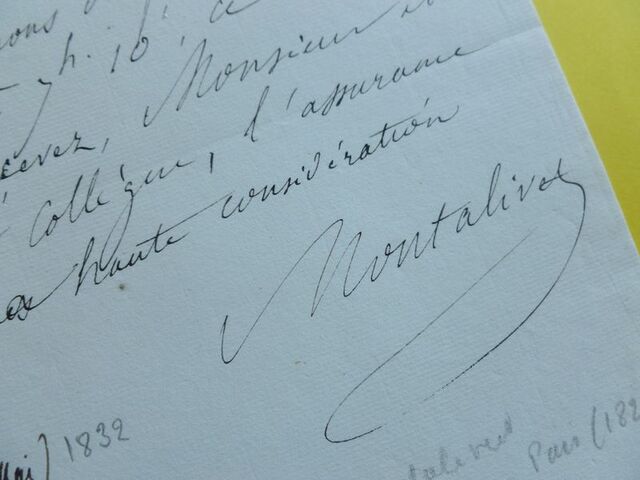 h. 10' ce
cevez, Monsieur et
Collègue, l'assurance
haute considération
Montalivet
1832
Pair (182